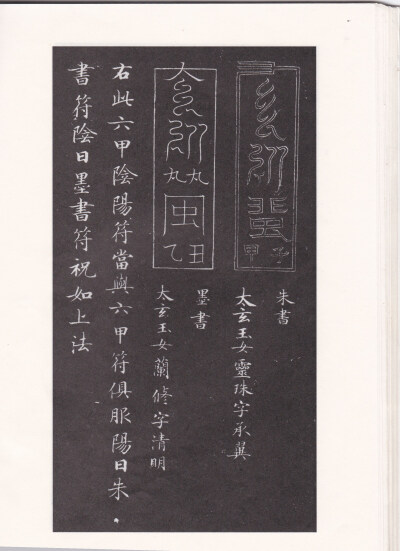 子甲
朱書
太玄玉女靈珠字承翼
丑乙
墨書
太玄玉女蘭修字清明
右此六甲陰陽符當與六甲符俱服陽日朱
書符陰日墨書符祝如上法